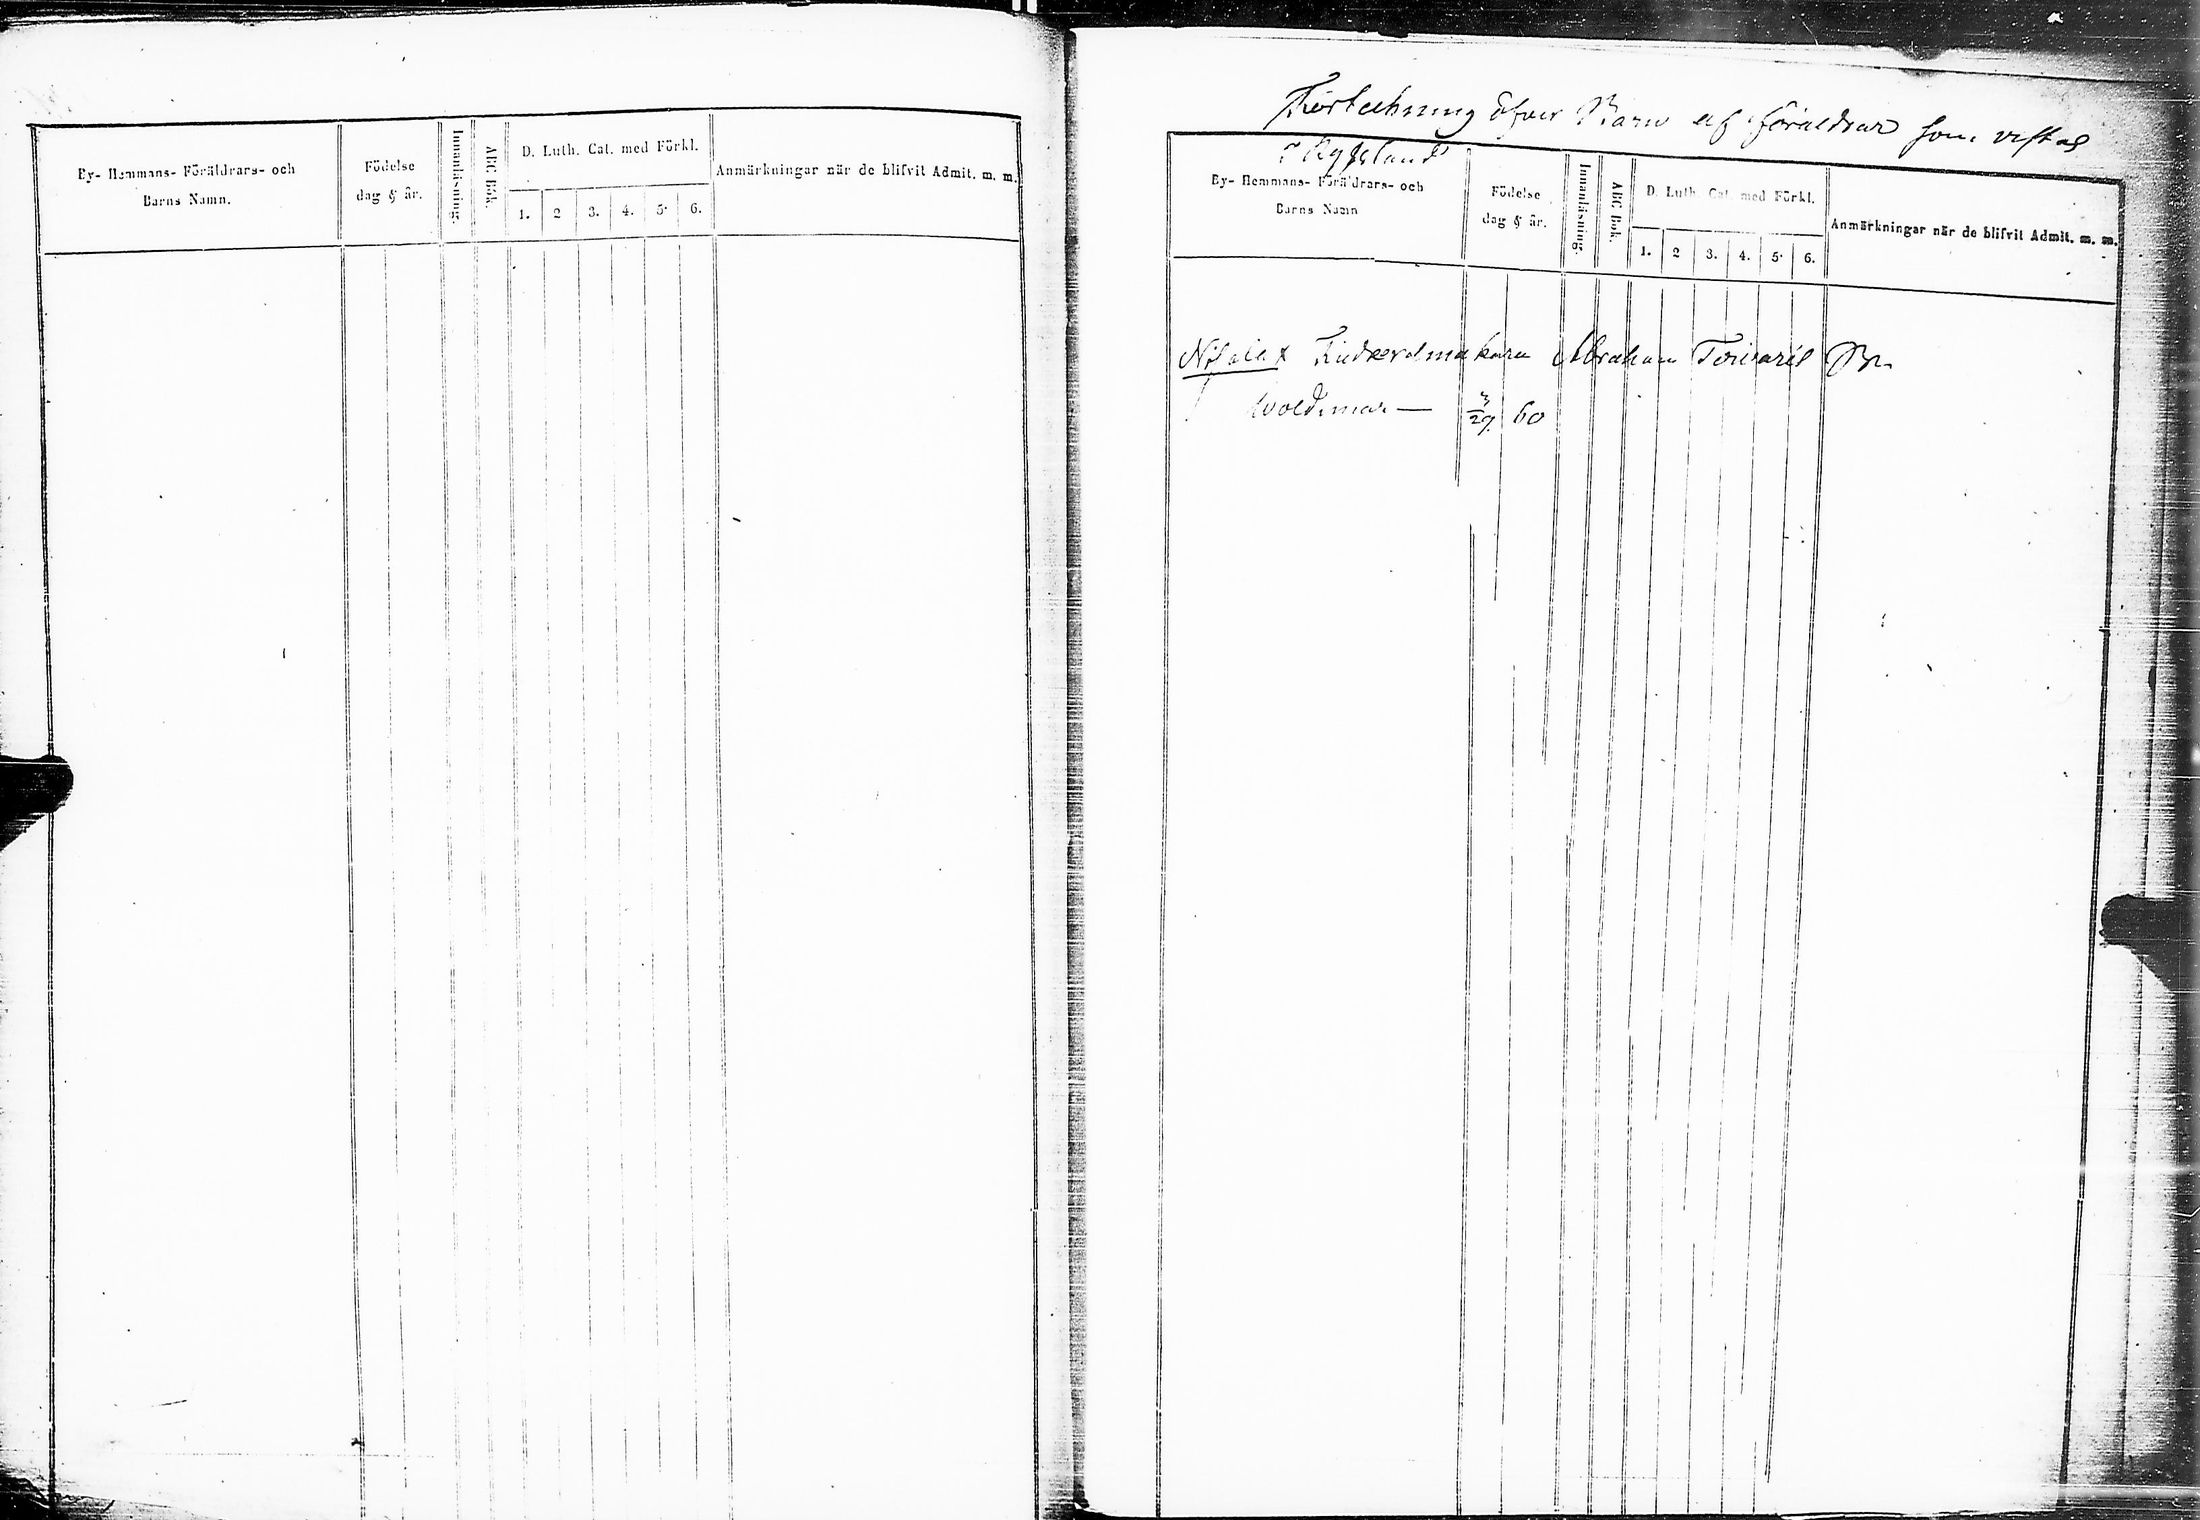 By- Hemmans- Föräldrars- och
Barns Namn.
Födelse
dag & år.
Innanläsning.
ABC Bok.
D. Luth. Cat. med Förkl.
1. 2 3. 4. 5. 6.
Anmärkningar när de blifvit Admit. m. m.
Förteckning öfver Barn af föräldrar som vistas
i Ryssland
By- Hemmans- Föräldrars- och
Barns Namn
Födelse
dag & år.
Innanläsning.
ABC Bok.
D. Luth. Cat. med Förkl.
1. 2 3. 4. 5. 6.
Anmärkningar när de blifvit Admit. m. m.
Abraham
Woldemar — 3/29. 60